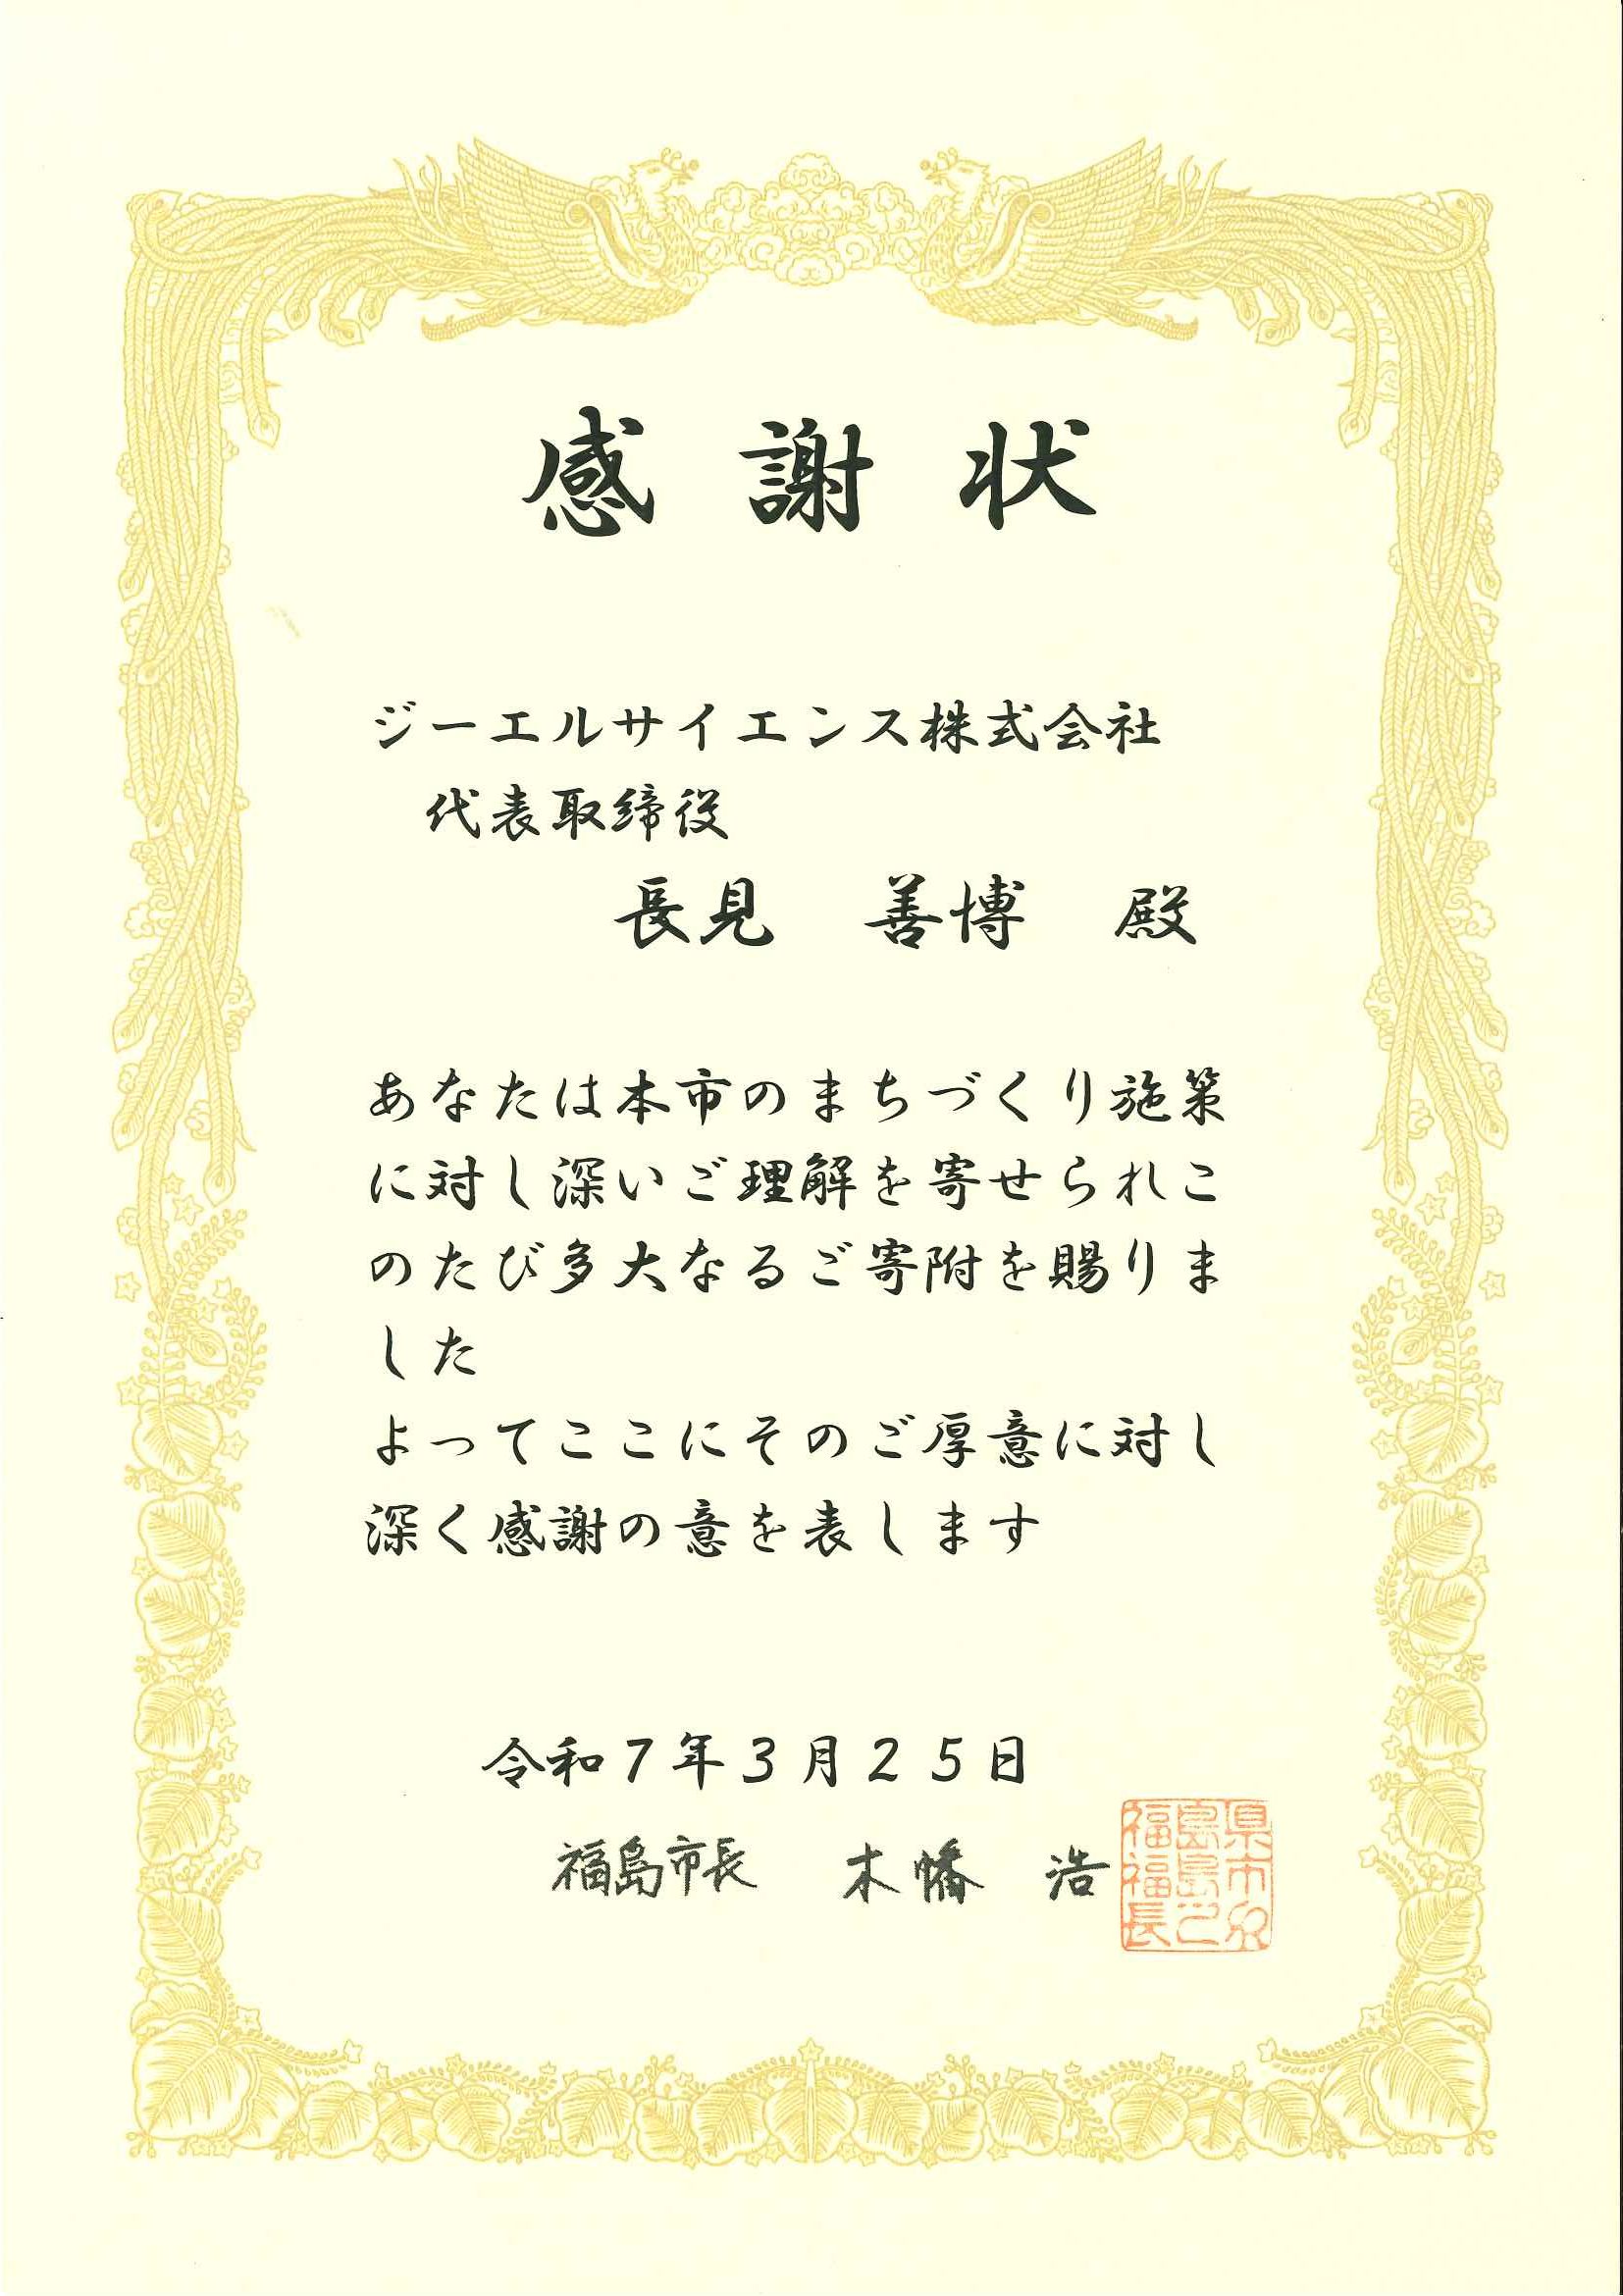 感謝状
ジーエルサイエンス株式会社
代表取締役
長見 善博 殿
あなたは本市のまちづくり施策
に対し深いご理解を寄せられこ
のたび多大なるご寄附を賜りま
した
よってここにそのご厚意に対し
深く感謝の意を表します
令和7年3月25日
福島市長 木幡 浩
福島県
福島市
長之印